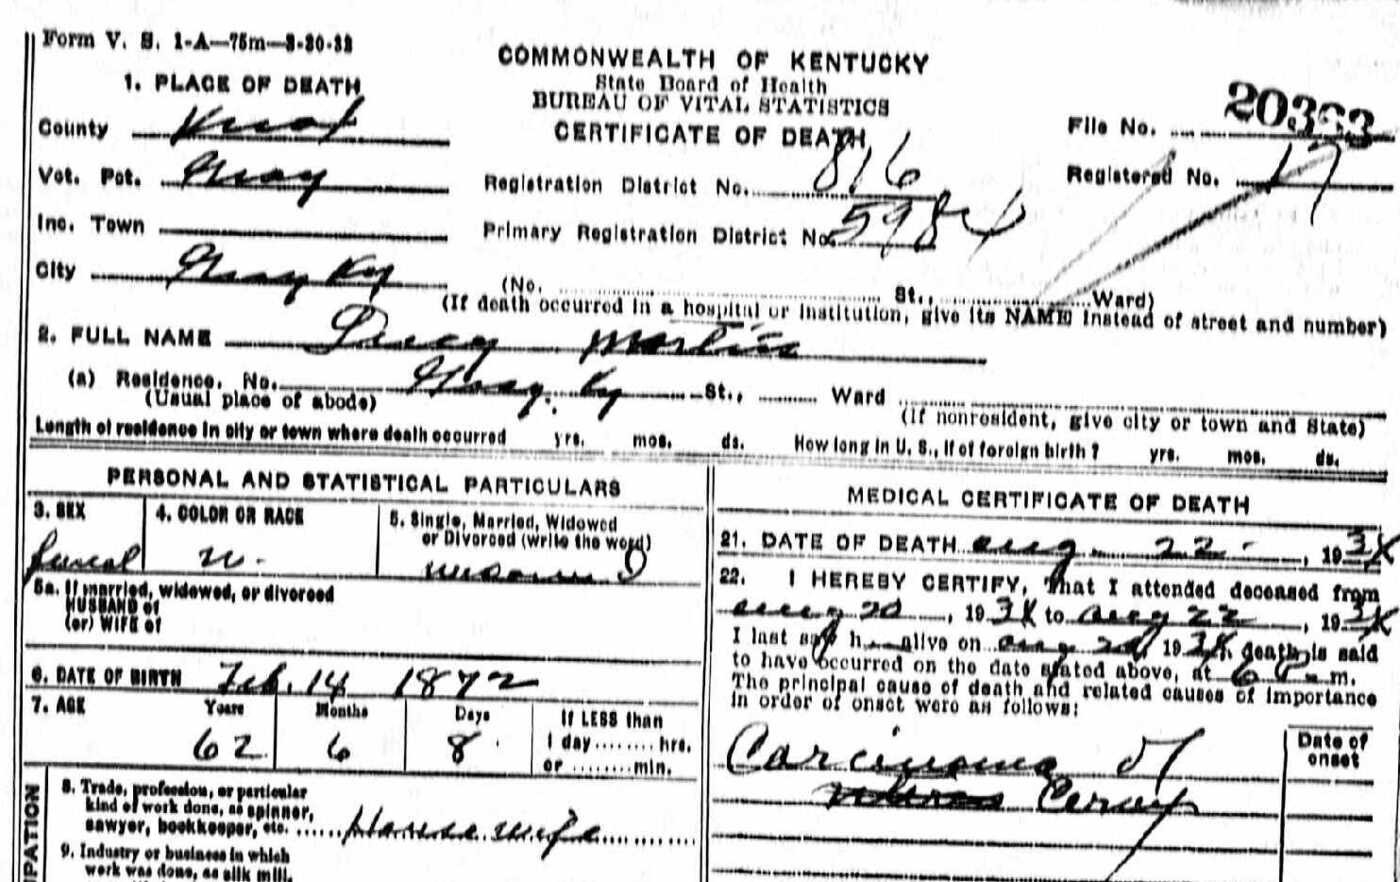 Form V. S. 1-A—75m—3-30-33
COMMONWEALTH OF KENTUCKY
State Board of Health
BUREAU OF VITAL STATISTICS
CERTIFICATE OF DEATH
File No. 20363
Registered No. 17
1. PLACE OF DEATH
County Knox
Vot. Pct. Gray
Inc. Town
City Gray Ky
Registration District No. 816
Primary Registration District No. 5984
(No. St., Ward)
(If death occurred in a hospital or institution, give its NAME instead of street and number)
2. FULL NAME Lucy Martin
(a) Residence. No. Gray, Ky St., Ward
(Usual place of abode)
(If nonresident, give city or town and State)
Length of residence in city or town where death occurred yrs. mos. ds. How long in U. S., if of foreign birth? yrs. mos. ds.
PERSONAL AND STATISTICAL PARTICULARS
3. SEX
4. COLOR OR RACE
5. Single, Married, Widowed
or Divorced (write the word)
W.
5a. If married, widowed, or divorced
HUSBAND of
(or) WIFE of
6. DATE OF BIRTH Feb. 14 1872
7. AGE Years Months Days If LESS than
62 6 8 1 day ........ hrs.
or ......... min.
8. Trade, profession, or particular
kind of work done, as spinner,
sawyer, bookkeeper, etc. House wife
9. Industry or business in which
work was done, as silk mill,
UPATION
MEDICAL CERTIFICATE OF DEATH
21. DATE OF DEATH Aug 22, 1934
22. I HEREBY CERTIFY, That I attended deceased from
Aug 20, 1934 to Aug 22, 1934
I last saw h alive on Aug 20, 1934, death is said
to have occurred on the date stated above, at 6 P. m.
The principal cause of death and related causes of importance
in order of onset were as follows:
Date of
onset
Carcinoma of
Cervix